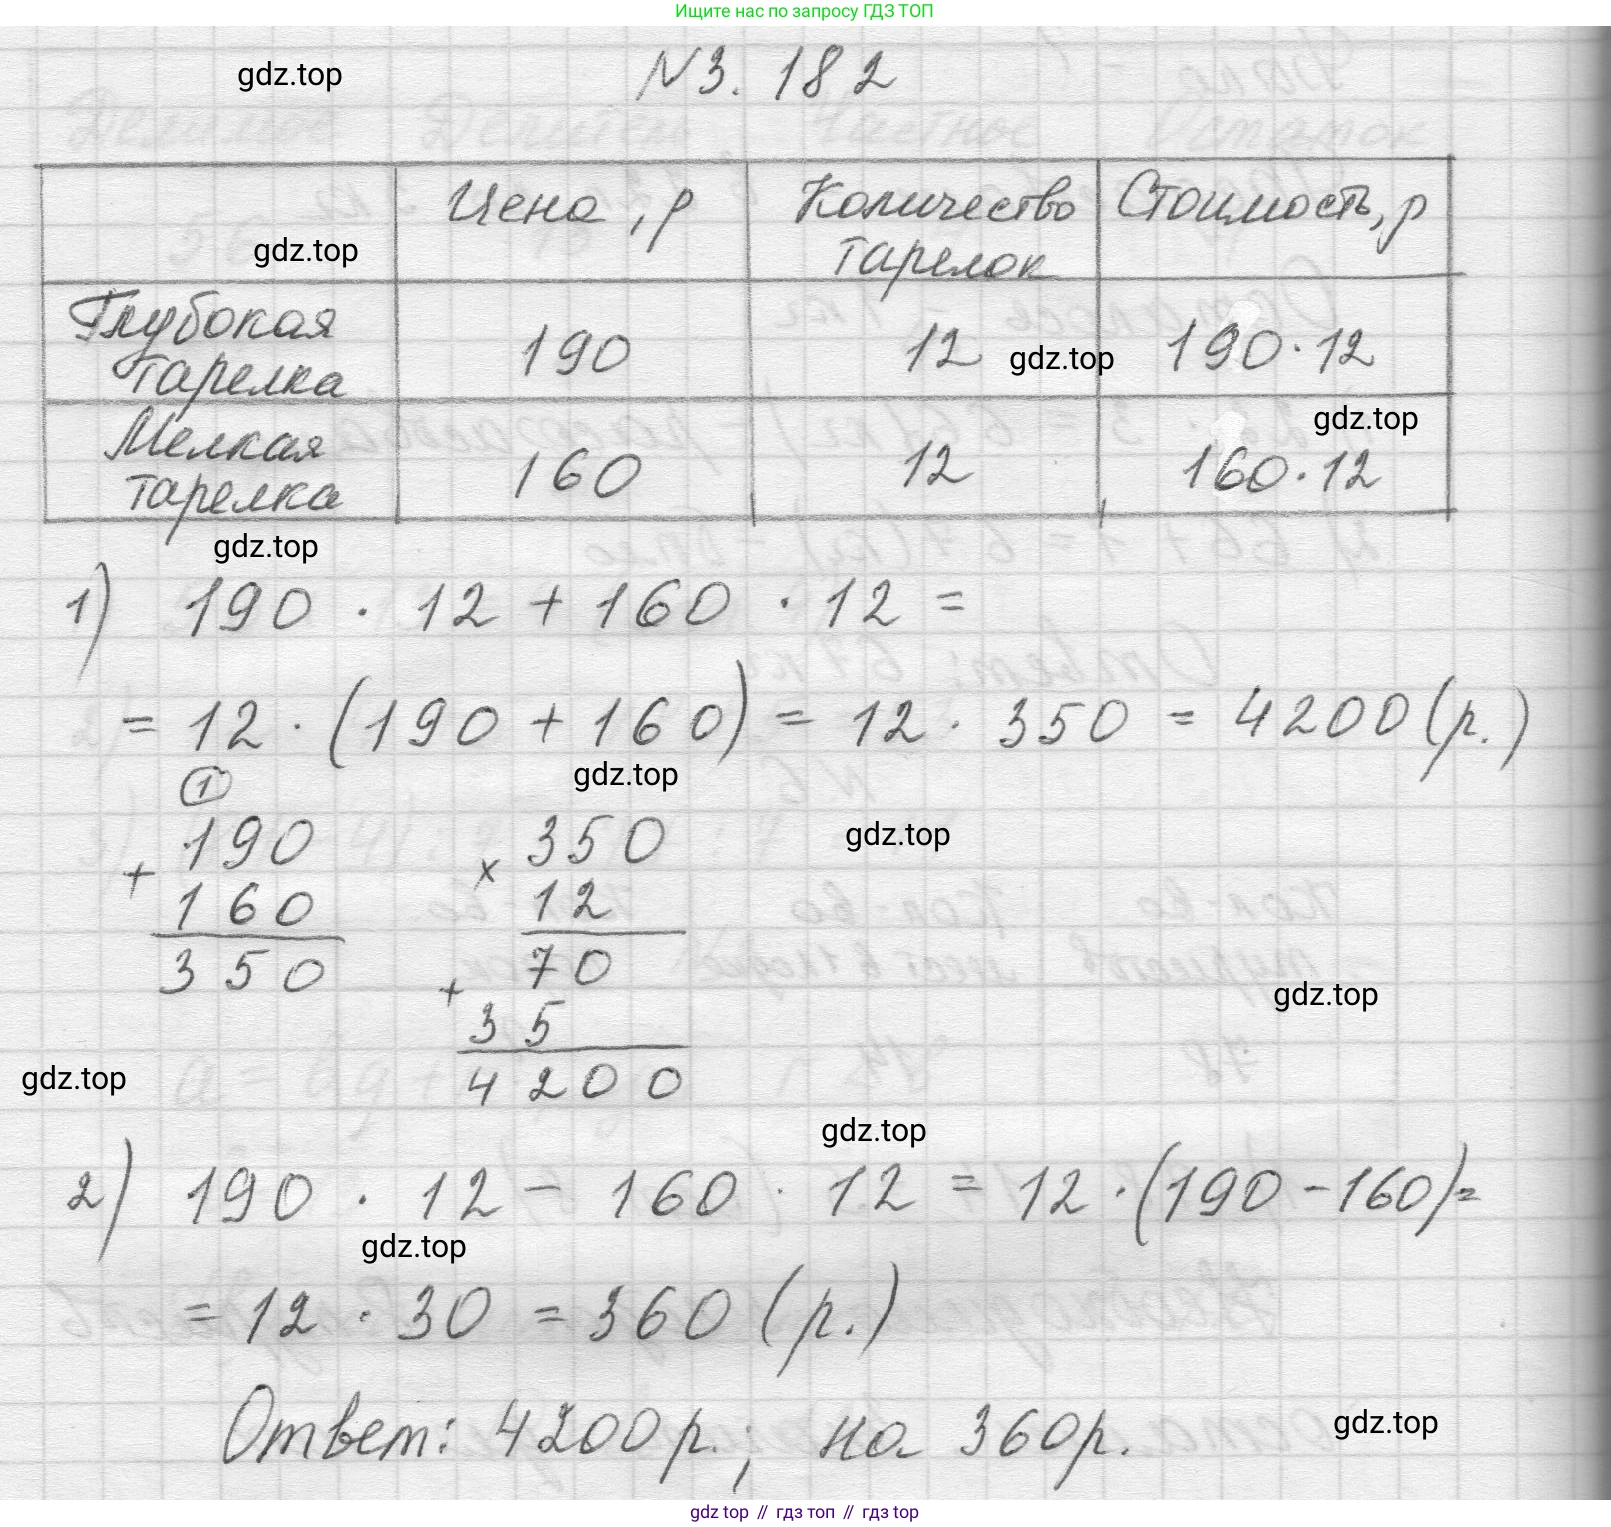 Ищите нас по запросу ГДЗ ТОП
gdz.top
N3.182
Цена, р
Количество тарелок
Стоимость, р
gdz.top
Глубокая тарелка
190
12
gdz.top
190·12
Мелкая тарелка
160
12
gdz.top
160·12
gdz.top
1) 190 · 12 + 160 · 12 =
= 12 · (190 + 160) = 12 · 350 = 4200 (р.)
gdz.top
1
190
+
160
350
350
×
12
70
+
35
4200
gdz.top
gdz.top
gdz.top
gdz.top
2) 190 · 12 - 160 · 12 = 12 · (190 - 160) =
gdz.top
= 12 · 30 = 360 (р.)
Ответ: 4200 р.; на 360р.
gdz.top
gdz top // гдз топ // гдз top